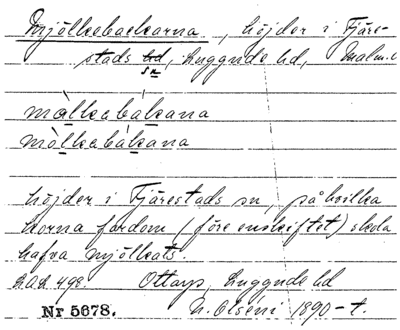 Mjölkebackarna, höjder i Fjäre-
stads hd, Luggude hd, Malm.
sn
mɑ̀lkebakana
mòlkebàkana
höjder i Fjärestads sn, på hvilka
korna fordom (före enskiftet) skola
hafva mjölkats.
L.A.U. 498. Ottarp, Luggude hd
Nr 5678. N. Olséni 1890-t.